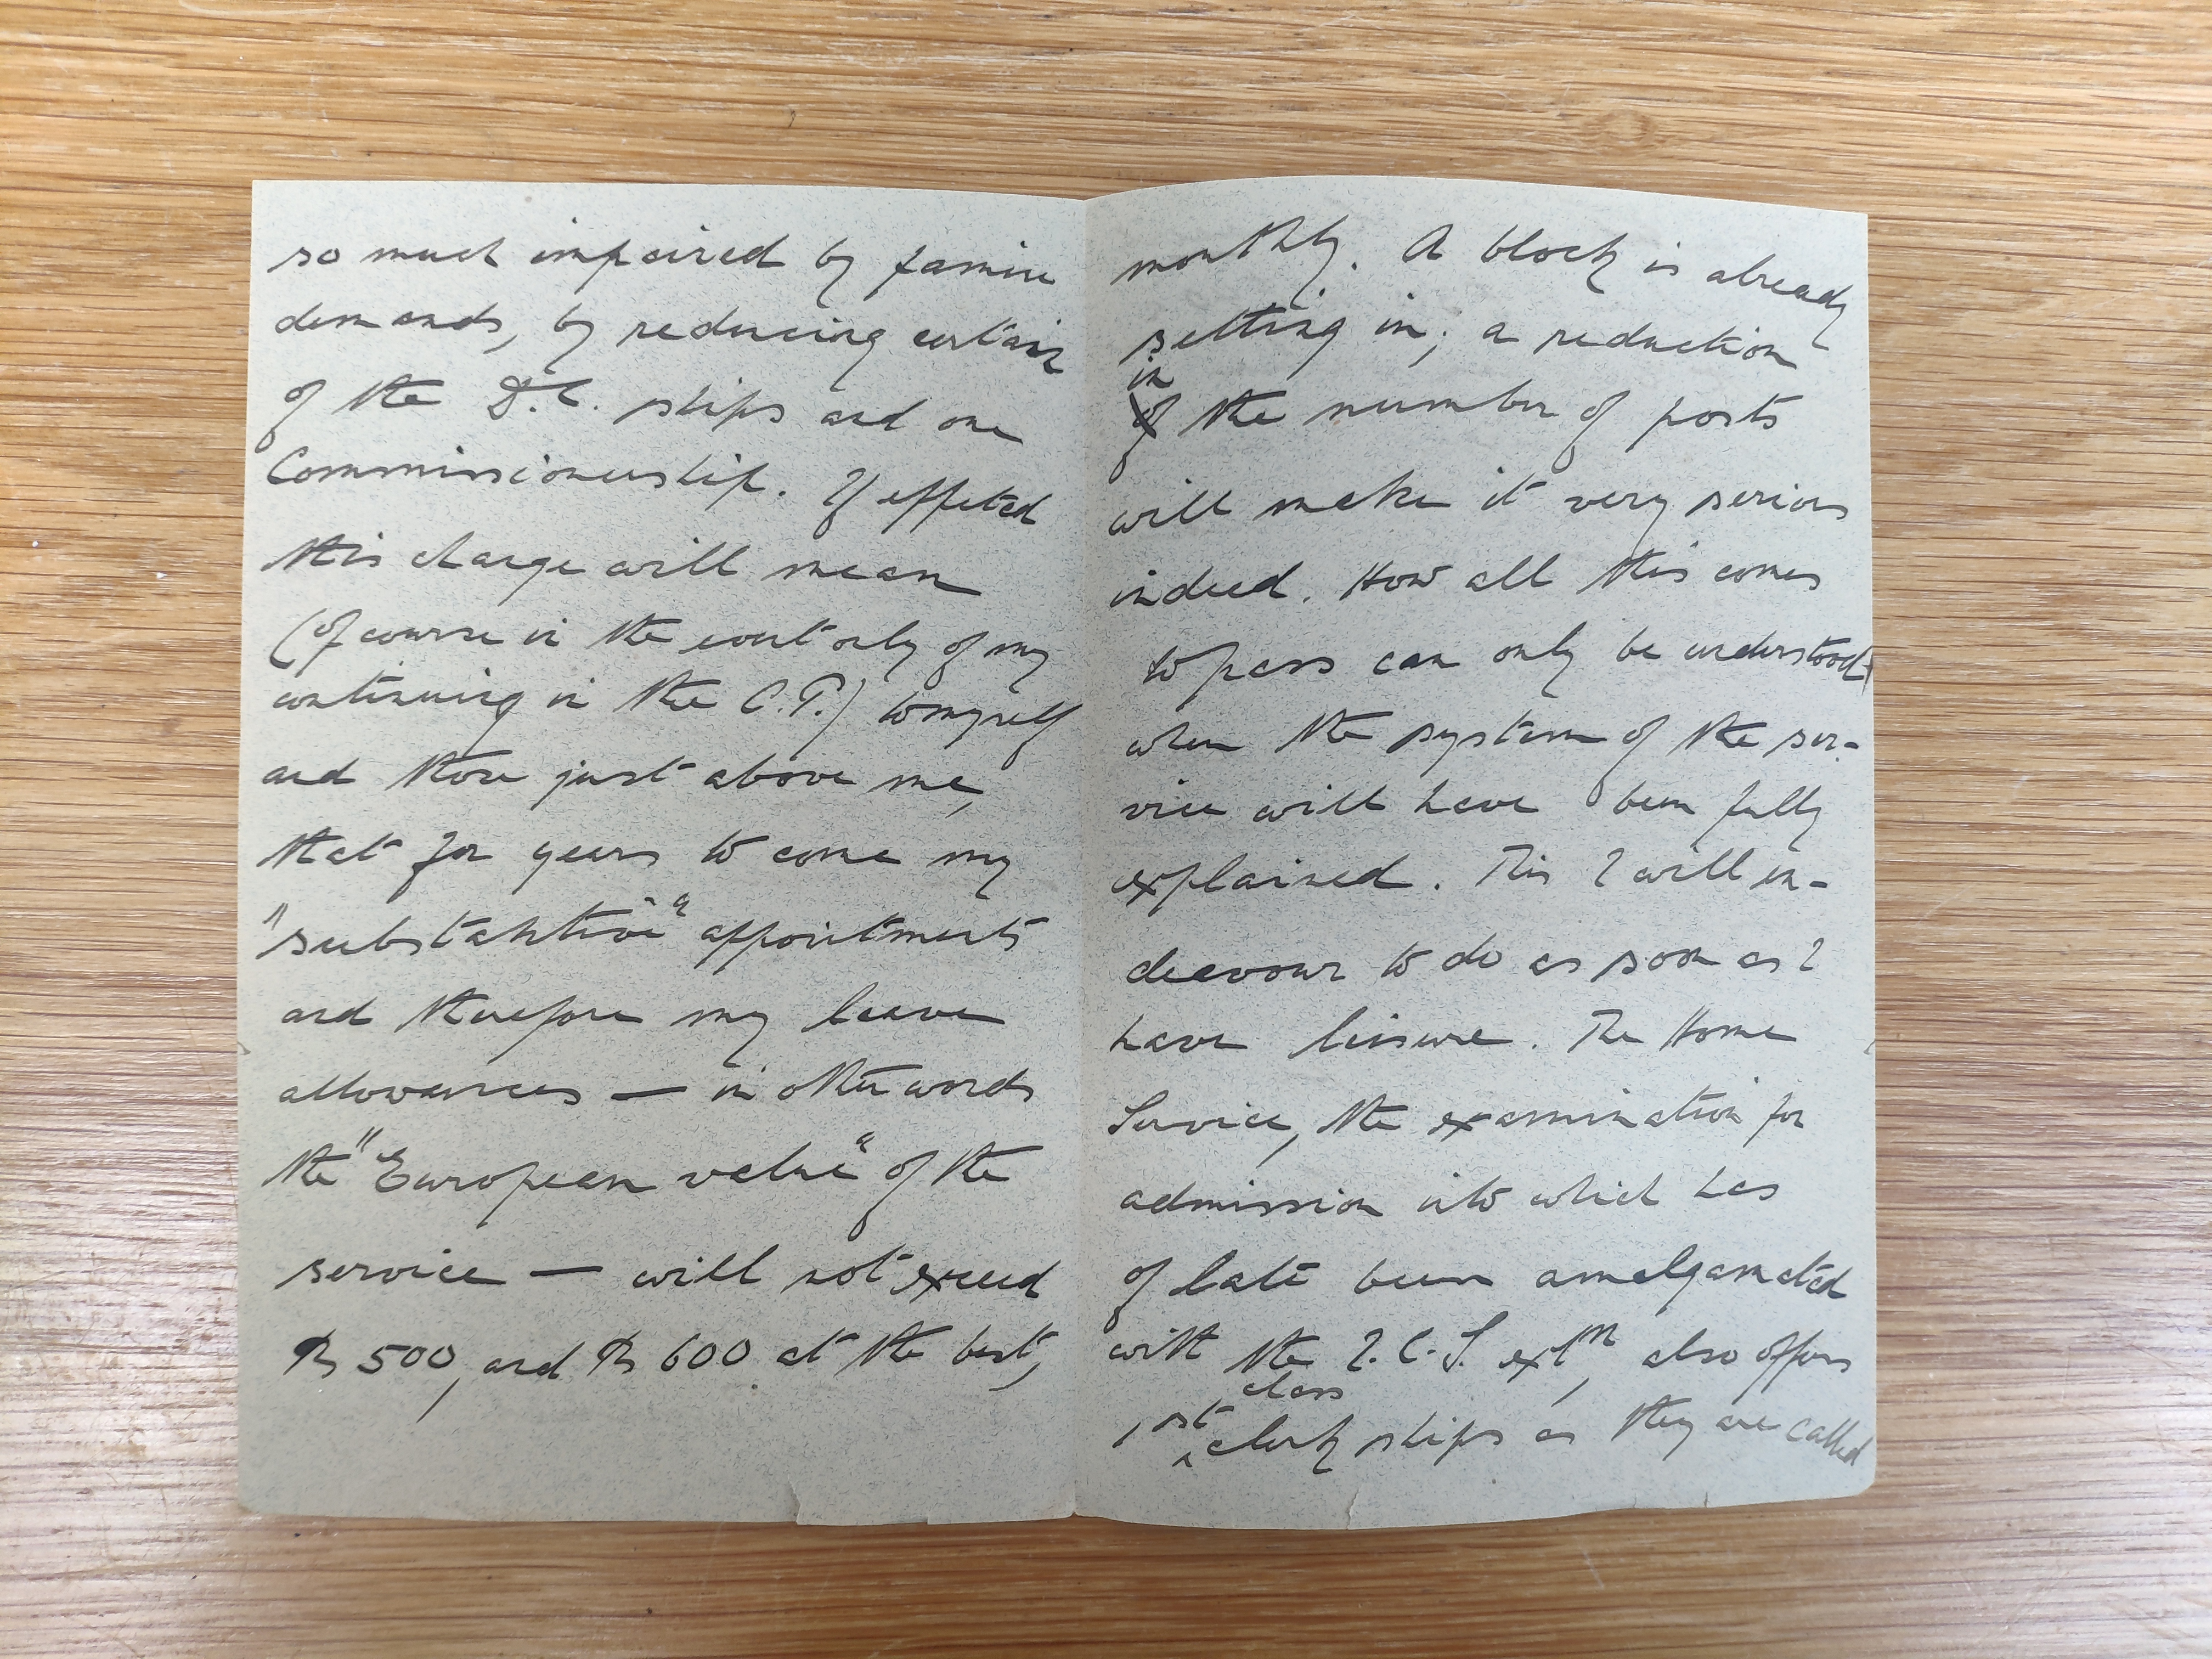 so much impaired by famine
demands, by reducing certain
of the D.C. ships and one
Commissionership. If effected
this change will mean
(of course in the event only of my
continuing in the C.P.) to myself
and those just above me,
that for years to come my
"substantive" appointments
and therefore my leave
allowances — in other words
the "European value" of the
service — will not exceed
Rs 500, and Rs 600 at the best,
monthly. A block is already
setting in; a reduction
in
of the number of posts
will make it very serious
indeed. How all this comes
to pass can only be understood
when the system of the ser-
vice will have been fully
explained. This I will en-
deavour to do as soon as I
have leisure. The Home
Service, the examination for
admission into which has
of late been amalgamated
with the I.C.S. extn, also offers
class
1st clerk ships as they are called